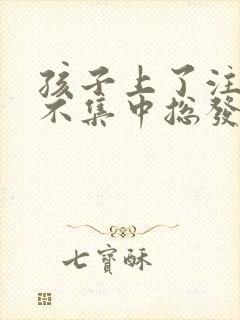 孩子上了注
不集中総發
七寶酥